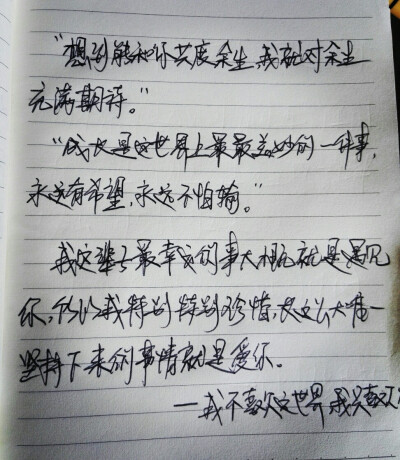 “想到能和你共度余生,我就对余生
充满期待。”
“成长是这世界上最最美妙的一件事,
永远有希望,永远不怕输。”
我这辈子最幸运的事大概就是遇见
你,所以我特别特别珍惜,长这么大唯一
坚持下来的事情就是爱你。
——我不喜欢这世界 我只喜欢